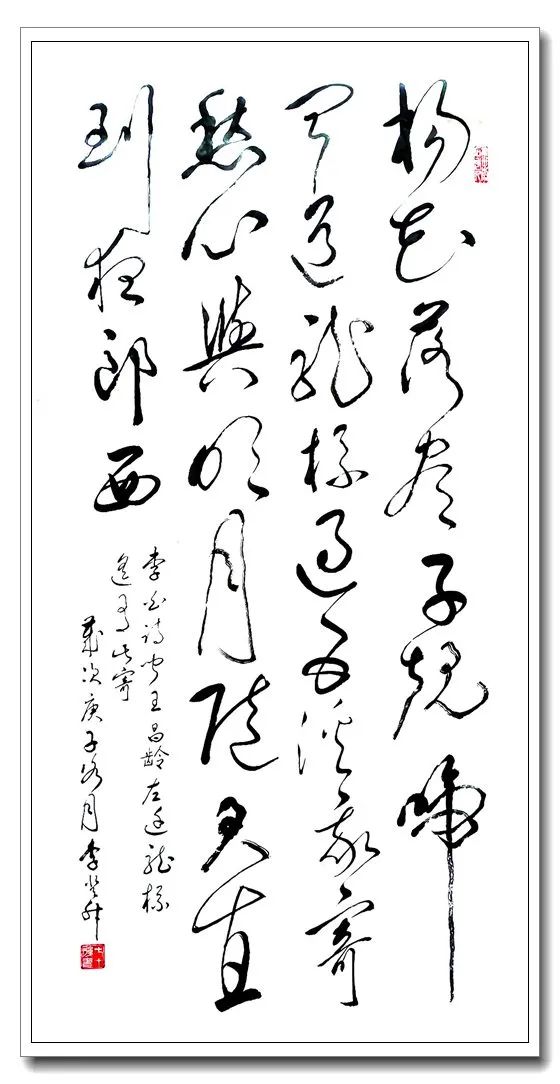 杨花落尽子规啼
闻道龙标过五溪我寄
愁心與明月随君直
到夜郎西
李白诗闻王昌龄左迁龙标
遥有此寄
岁次庚子 月李